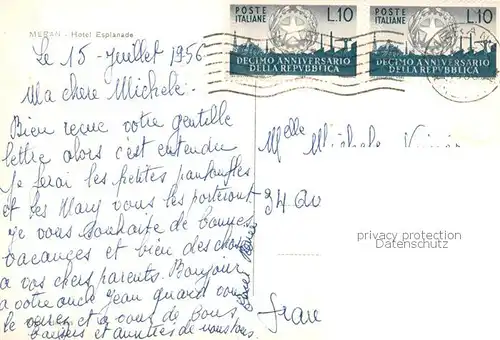 MERAN - Hotel Esplanade
POSTE ITALIANE L.10
DECIMO ANNIVERSARIO
DELLA REPVBBLICA
POSTE ITALIANE L.10
DECIMO ANNIVERSARIO
DELLA REPVBBLICA
Le 15 - Juillet 1956
Ma chere Michele.
Bien reçue votre gentille
lettre alors c'est entendu
Je ferai les petites pantoufles
et Les Mary vous les porteront
je vous souhaite de bonnes
vacances et bien des choses
a vos chers parents. Bonjour
a votre oncle Jean quand vous
le verrez et a vous de bons
baisers et amitiés de nous tous.
Melle Michele
94 20
privacy protection
Datenschutz